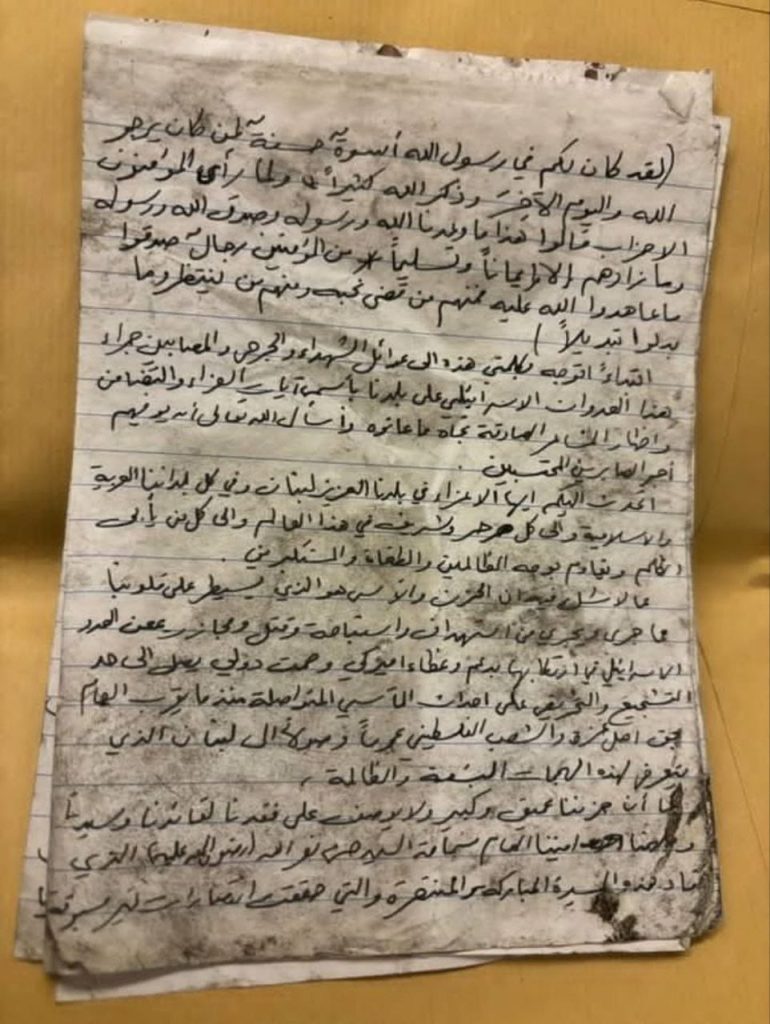 (لقد كان لكم في رسول الله أسوةٌ حسنةٌ لمن كان يرجو
الله واليوم الآخِرَ وذكر الله كثيراً ولما رأى المؤمنون
الاحزاب قالوا هذا ما وعدنا الله ورسوله وصدق الله ورسوله
وما زادهم إلا إيماناً وتسليماً * من المؤمنين رجالٌ صدقوا
ما عاهدوا الله عليه فمنهم من قضى نحبه ومنهم من ينتظر وما
بدلوا تبديلاً)
ابتداءً اتوجه بكلمتي هذه الى عوائل الشهداء والجرحى والمصابين جراء
هذا العدوان الاسرائيلي على بلدنا بأسمى آيات العزاء والتضامن
واظهار المشاعر الصادقة تجاه ما عانوه وأسأل الله تعالى أن يوفيهم
أجر الصابرين المحتسبين.
اتحدث اليكم ايها الاعزاء في بلدنا العزيز لبنان وفي كل بلداننا العربية
والاسلامية والى كل حر وشريف في هذا العالم والى كل من يأبى
الظلم ويقاوم بوجه الظالمين والطغاة والمستكبرين.
مما لا شك فيه ان الحزن والأسى هو الذي يسيطر على قلوبنا
مما جرى ويجري من استهداف واستباحة وقتل ومجازر يمعن العدو
الاسرائيلي في ارتكابها بدعم وغطاء اميركي وصمت دولي يصل الى حد
التشجيع والتحريض على احداث المآسي المتواصلة منذ ما يقرب العام
بحق اهل غزة والشعب الفلسطيني عموماً وصولاً الى لبنان الذي
يتعرض لهذه الهجمات البشعة والظالمة،
كما أن حزننا عميق وكبير ولا يوصف على فقدنا لقائدنا وسيدنا
اميننا العام سماحة السيد حسن نصر الله (رضوان الله عليه) الذي
قاد هذه المسيرة المباركة والمنتصرة والتي حققت انتصارات غير مسبوقة